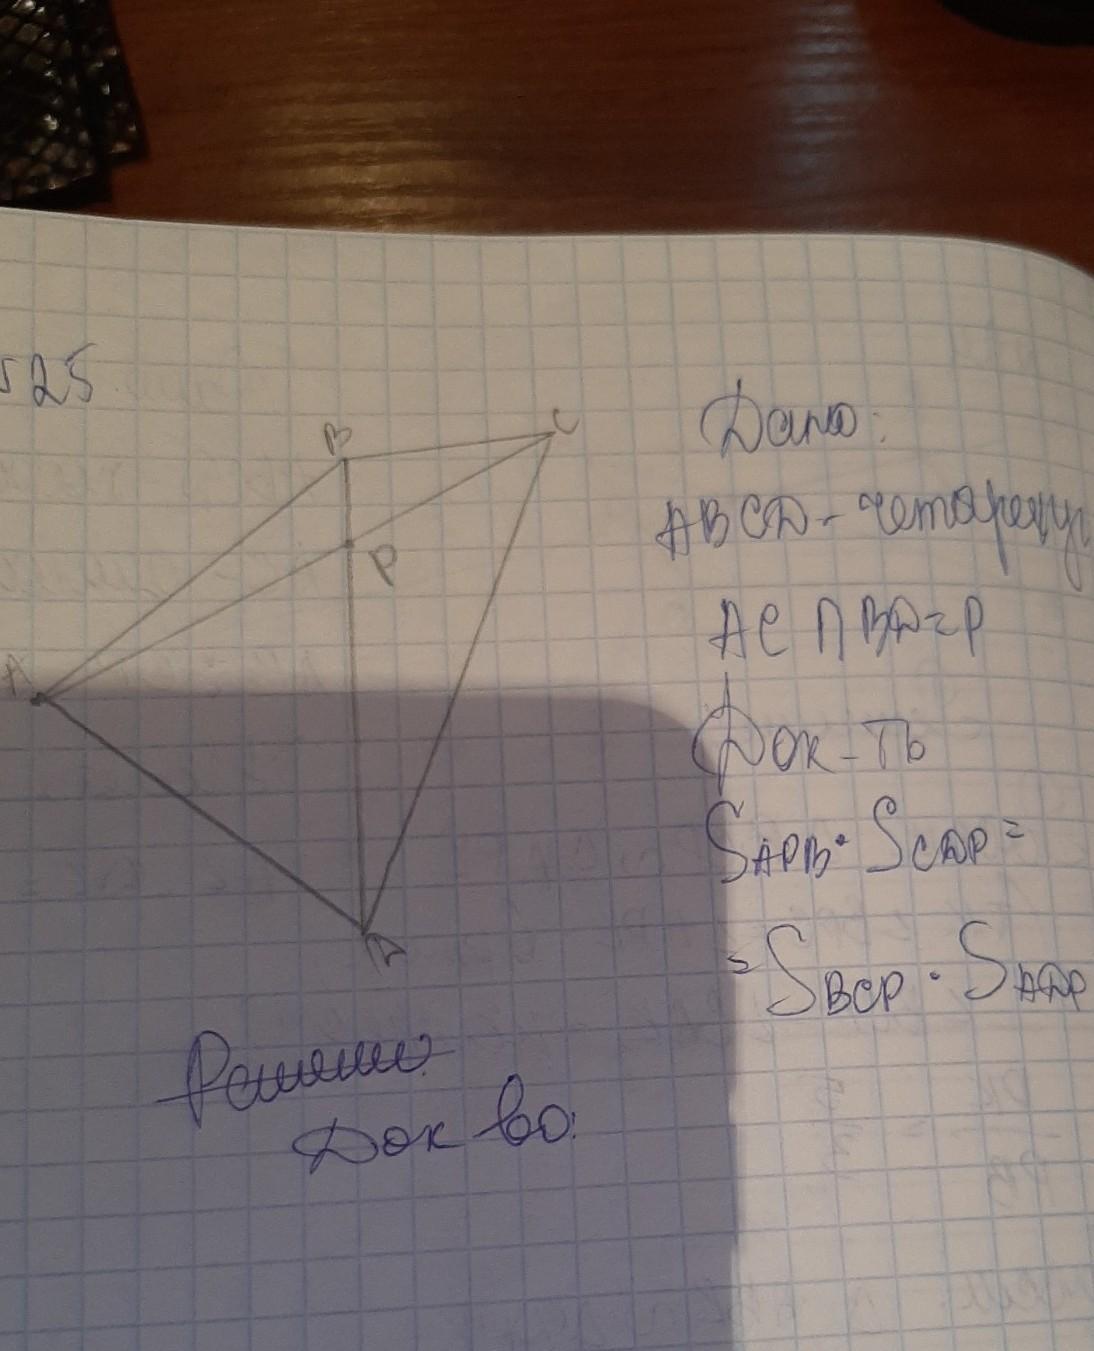 525
B
C
P
A
D
Дано:
ABCD - четырехуг
AC ∩ BD = P
Док-ть
S APB · S CDP =
= S BCP · S ADP
Решение
Док во: